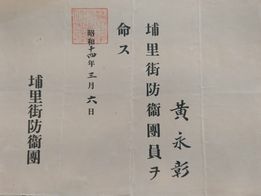 黃永彰
埔里街防衞團員ヲ
命ス
昭和十四年三月六日
埔里街防衞團